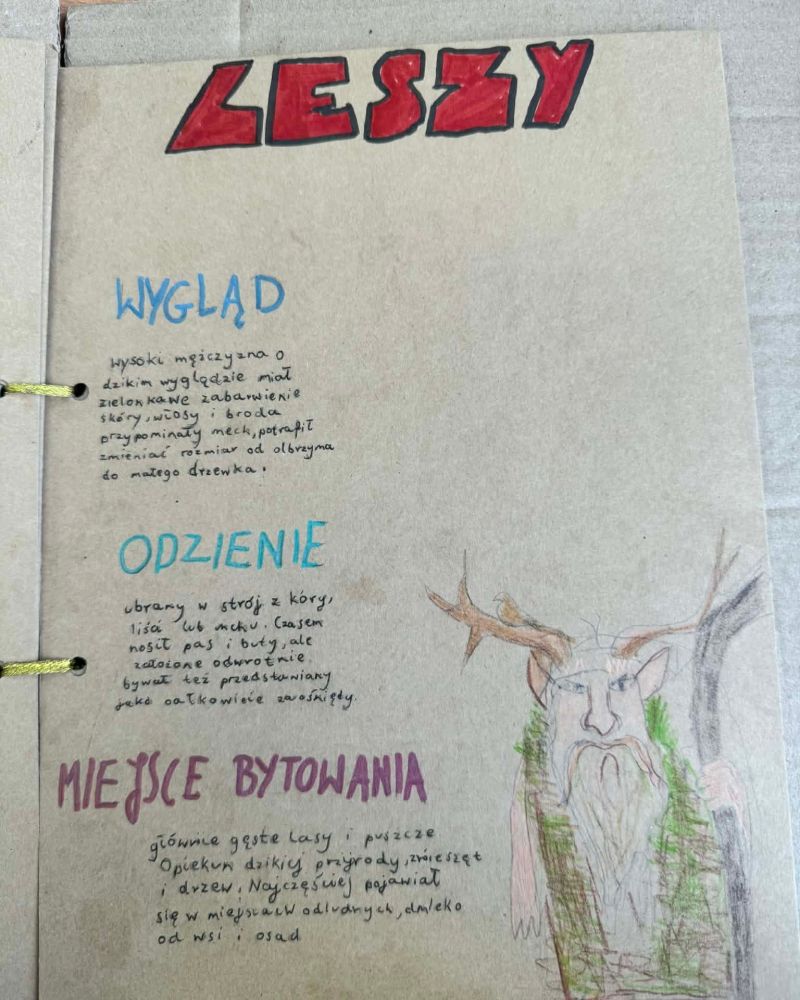 LESZY
WYGLĄD
Wysoki mężczyzna o
dzikim wyglądzie miał
zielonkawe zabarwienie
skóry, włosy i broda
przypominały mech, potrafił
zmieniać rozmiar od olbrzyma
do małego drzewka.
ODZIENIE
ubrany w strój z kóry,
liści lub mchu. Czasem
nosił pas i buty, ale
założone odwrotnie.
bywał też przedstawiany
jako całkowicie zarośnięty.
MIEJSCE BYTOWANIA
głównie gęste lasy i puszcze
Opiekun dzikiej przyrody, zwierząt
i drzew. Najczęściej pojawiał
się w miejscach odludnych,
od wsi i osad